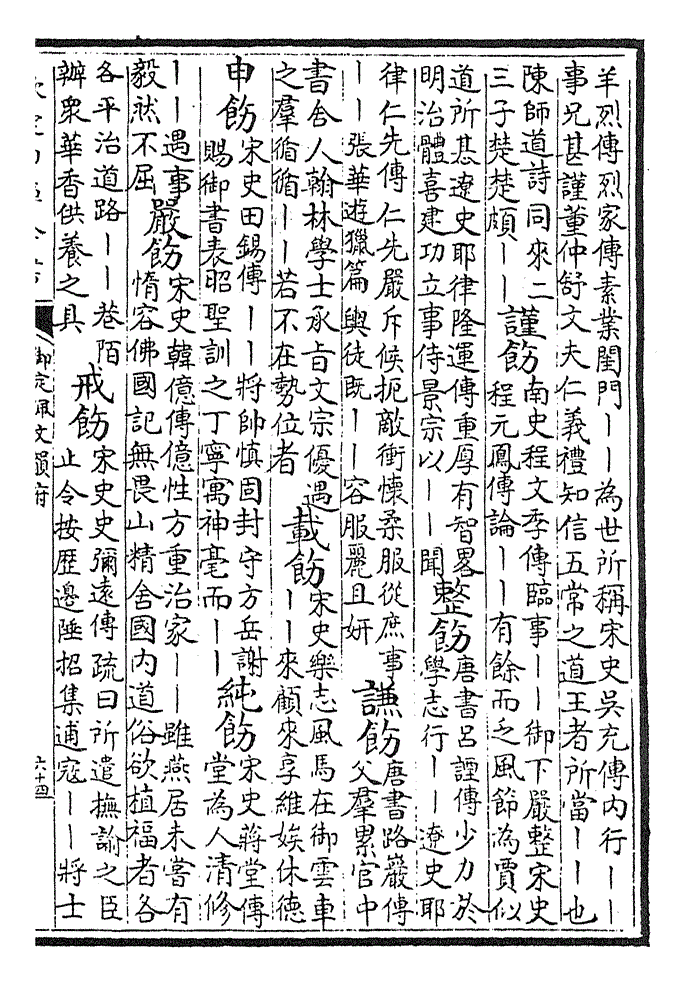 羊烈傳烈家傳素業閨門丨丨為世所稱宋史吳充傳内行丨丨
事兄甚謹董仲舒文夫仁義禮知信五常之道王者所當丨丨也
陳師道詩同來二
三子楚楚頗丨丨
謹飭
南史程文季傳臨事丨丨御下嚴整宋史
程元鳳傳論丨丨有餘而乏風節為賈似
道所惎遼史耶律隆運傳重厚有智畧
明治體喜建功立事侍景宗以丨丨聞
整飭
唐書呂諲傳少力於
學志行丨丨遼史耶
律仁先傳仁先嚴斥候扼敵衝懷柔服從庶事
丨丨張華遊獵篇輿徒既丨丨容服麗且妍
謙飭
唐書路巖傳
父羣累官中
書舍人翰林學士承旨文宗優遇
之羣循循丨丨若不在勢位者
載飭
宋史樂志風馬在御雲車
丨丨來顧來享維娭休德
申飭
宋史田錫傳丨丨將帥慎固封守方岳謝
賜御書表昭聖訓之丁寧寓神毫而丨丨
純飭
宋史蔣堂傳
堂為人清修
丨丨遇事
毅然不屈
嚴飭
宋史韓億傳億性方重治家丨丨雖燕居未嘗有
惰容佛國記無畏山精舍國内道俗欲植福者各
各平治道路丨丨巷陌
辦衆華香供養之具
戒飭
宋史史彌遠傳疏曰所遣撫諭之臣
止令按歷邊陲招集逋寇丨丨將士
御定佩文韻府
六十四